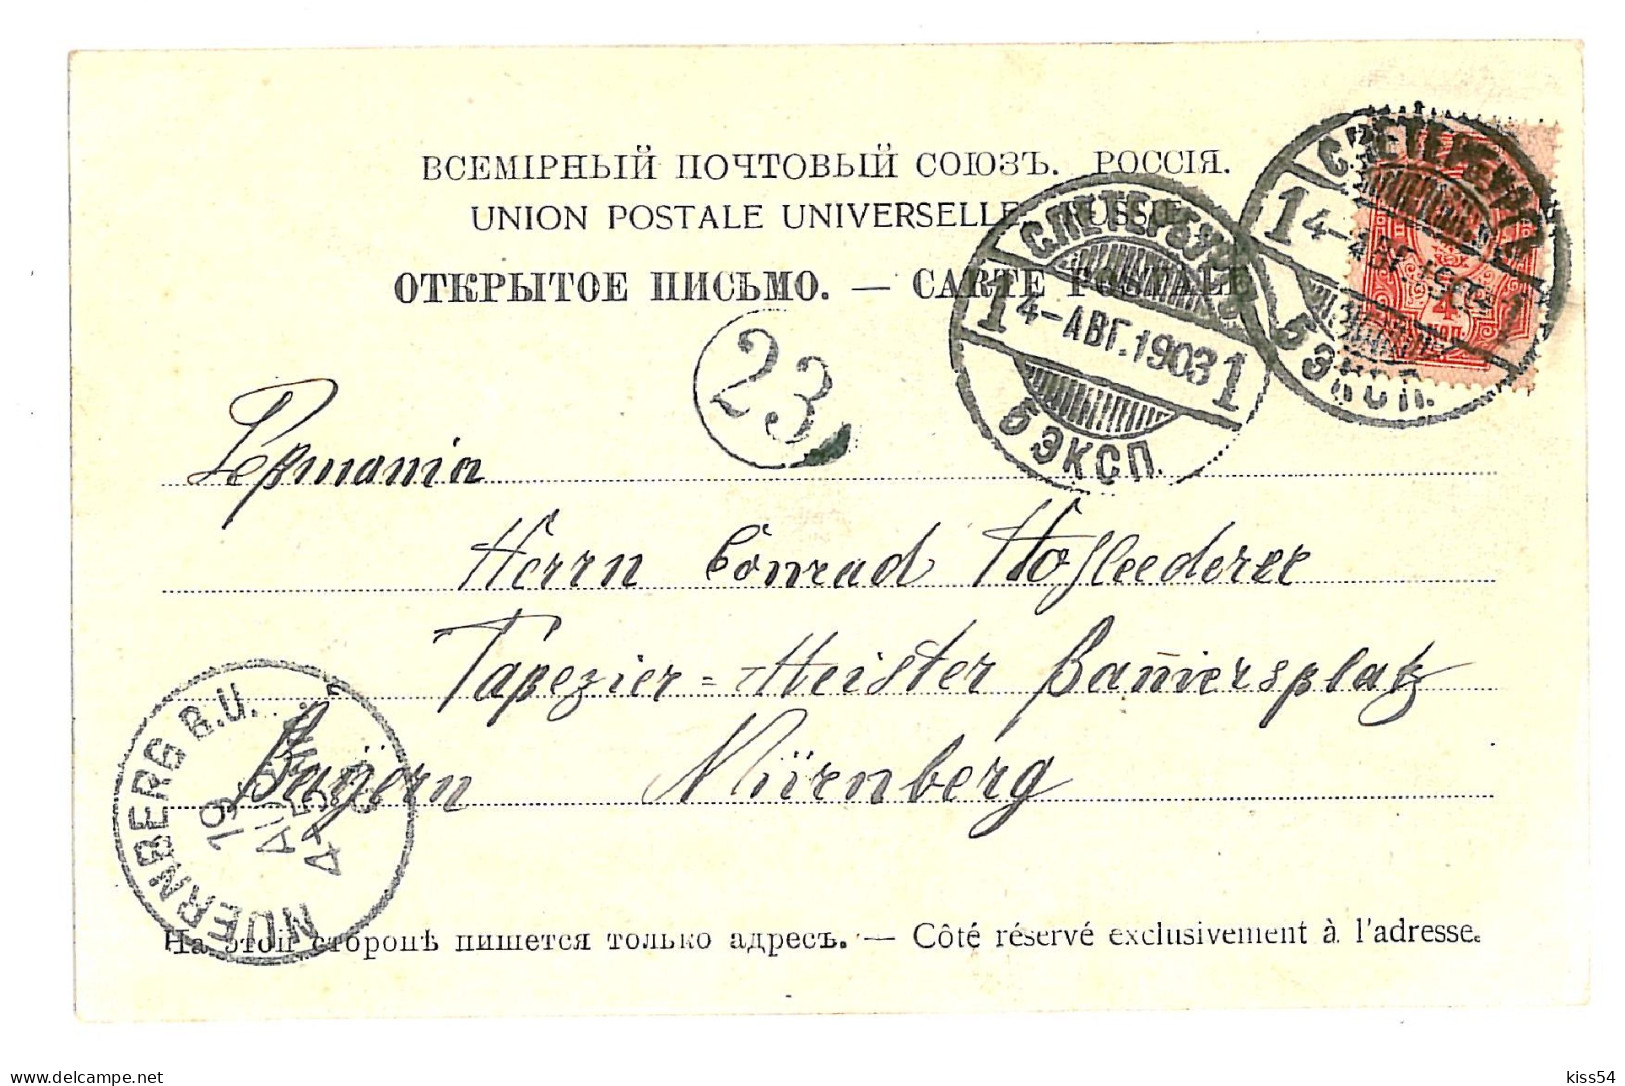 ВСЕМІРНЫЙ ПОЧТОВЫЙ СОЮЗЪ. РОССІЯ.
UNION POSTALE UNIVERSELLE. RUSSIE.
ОТКРЫТОЕ ПИСЬМО. — CARTE POSTALE
С.ПЕТЕРБУРГЪ
1 4-АВГ.1903 1
5 ЭКСП.
С.ПЕТЕРБУРГЪ
1 4-АВГ.1903 1
5 ЭКСП.
23
Германія
Herrn Conrad Hofleederer
Tapezier=Meister Baünersplatz
Bayern Nürnberg
NUERNBERG B.U.
19 AUG
На этой сторонѣ пишется только адресъ. — Côté réservé exclusivement à l'adresse.
delcampe.net
kiss54